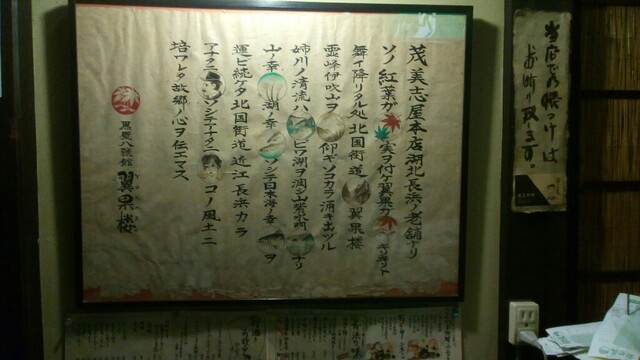 茂美志屋本店湖北長浜ノ老舗ナリ
ソノ紅葉ガ
実ヲ付ケ翼果カ
舞イ降リタル処 北国街道
翼果楼
霊峰伊吹山ヲ
仰ギソコカラ涌キ出ヅル
姉川ノ清流ハ
ビワ湖ヲ潤シ山紫水明
ナリ
山ノ幸
湖ノ幸
ソシテ日本海ノ幸
ヲ
運ビ続ケタ北国街道 近江長浜カラ
アナタニ
ソシテアナタニ
コノ風土ニ
培ワレタ故郷ノ心ヲ伝エマス
黒壁八號館
翼果楼
当店での帳つけは
お断り致します